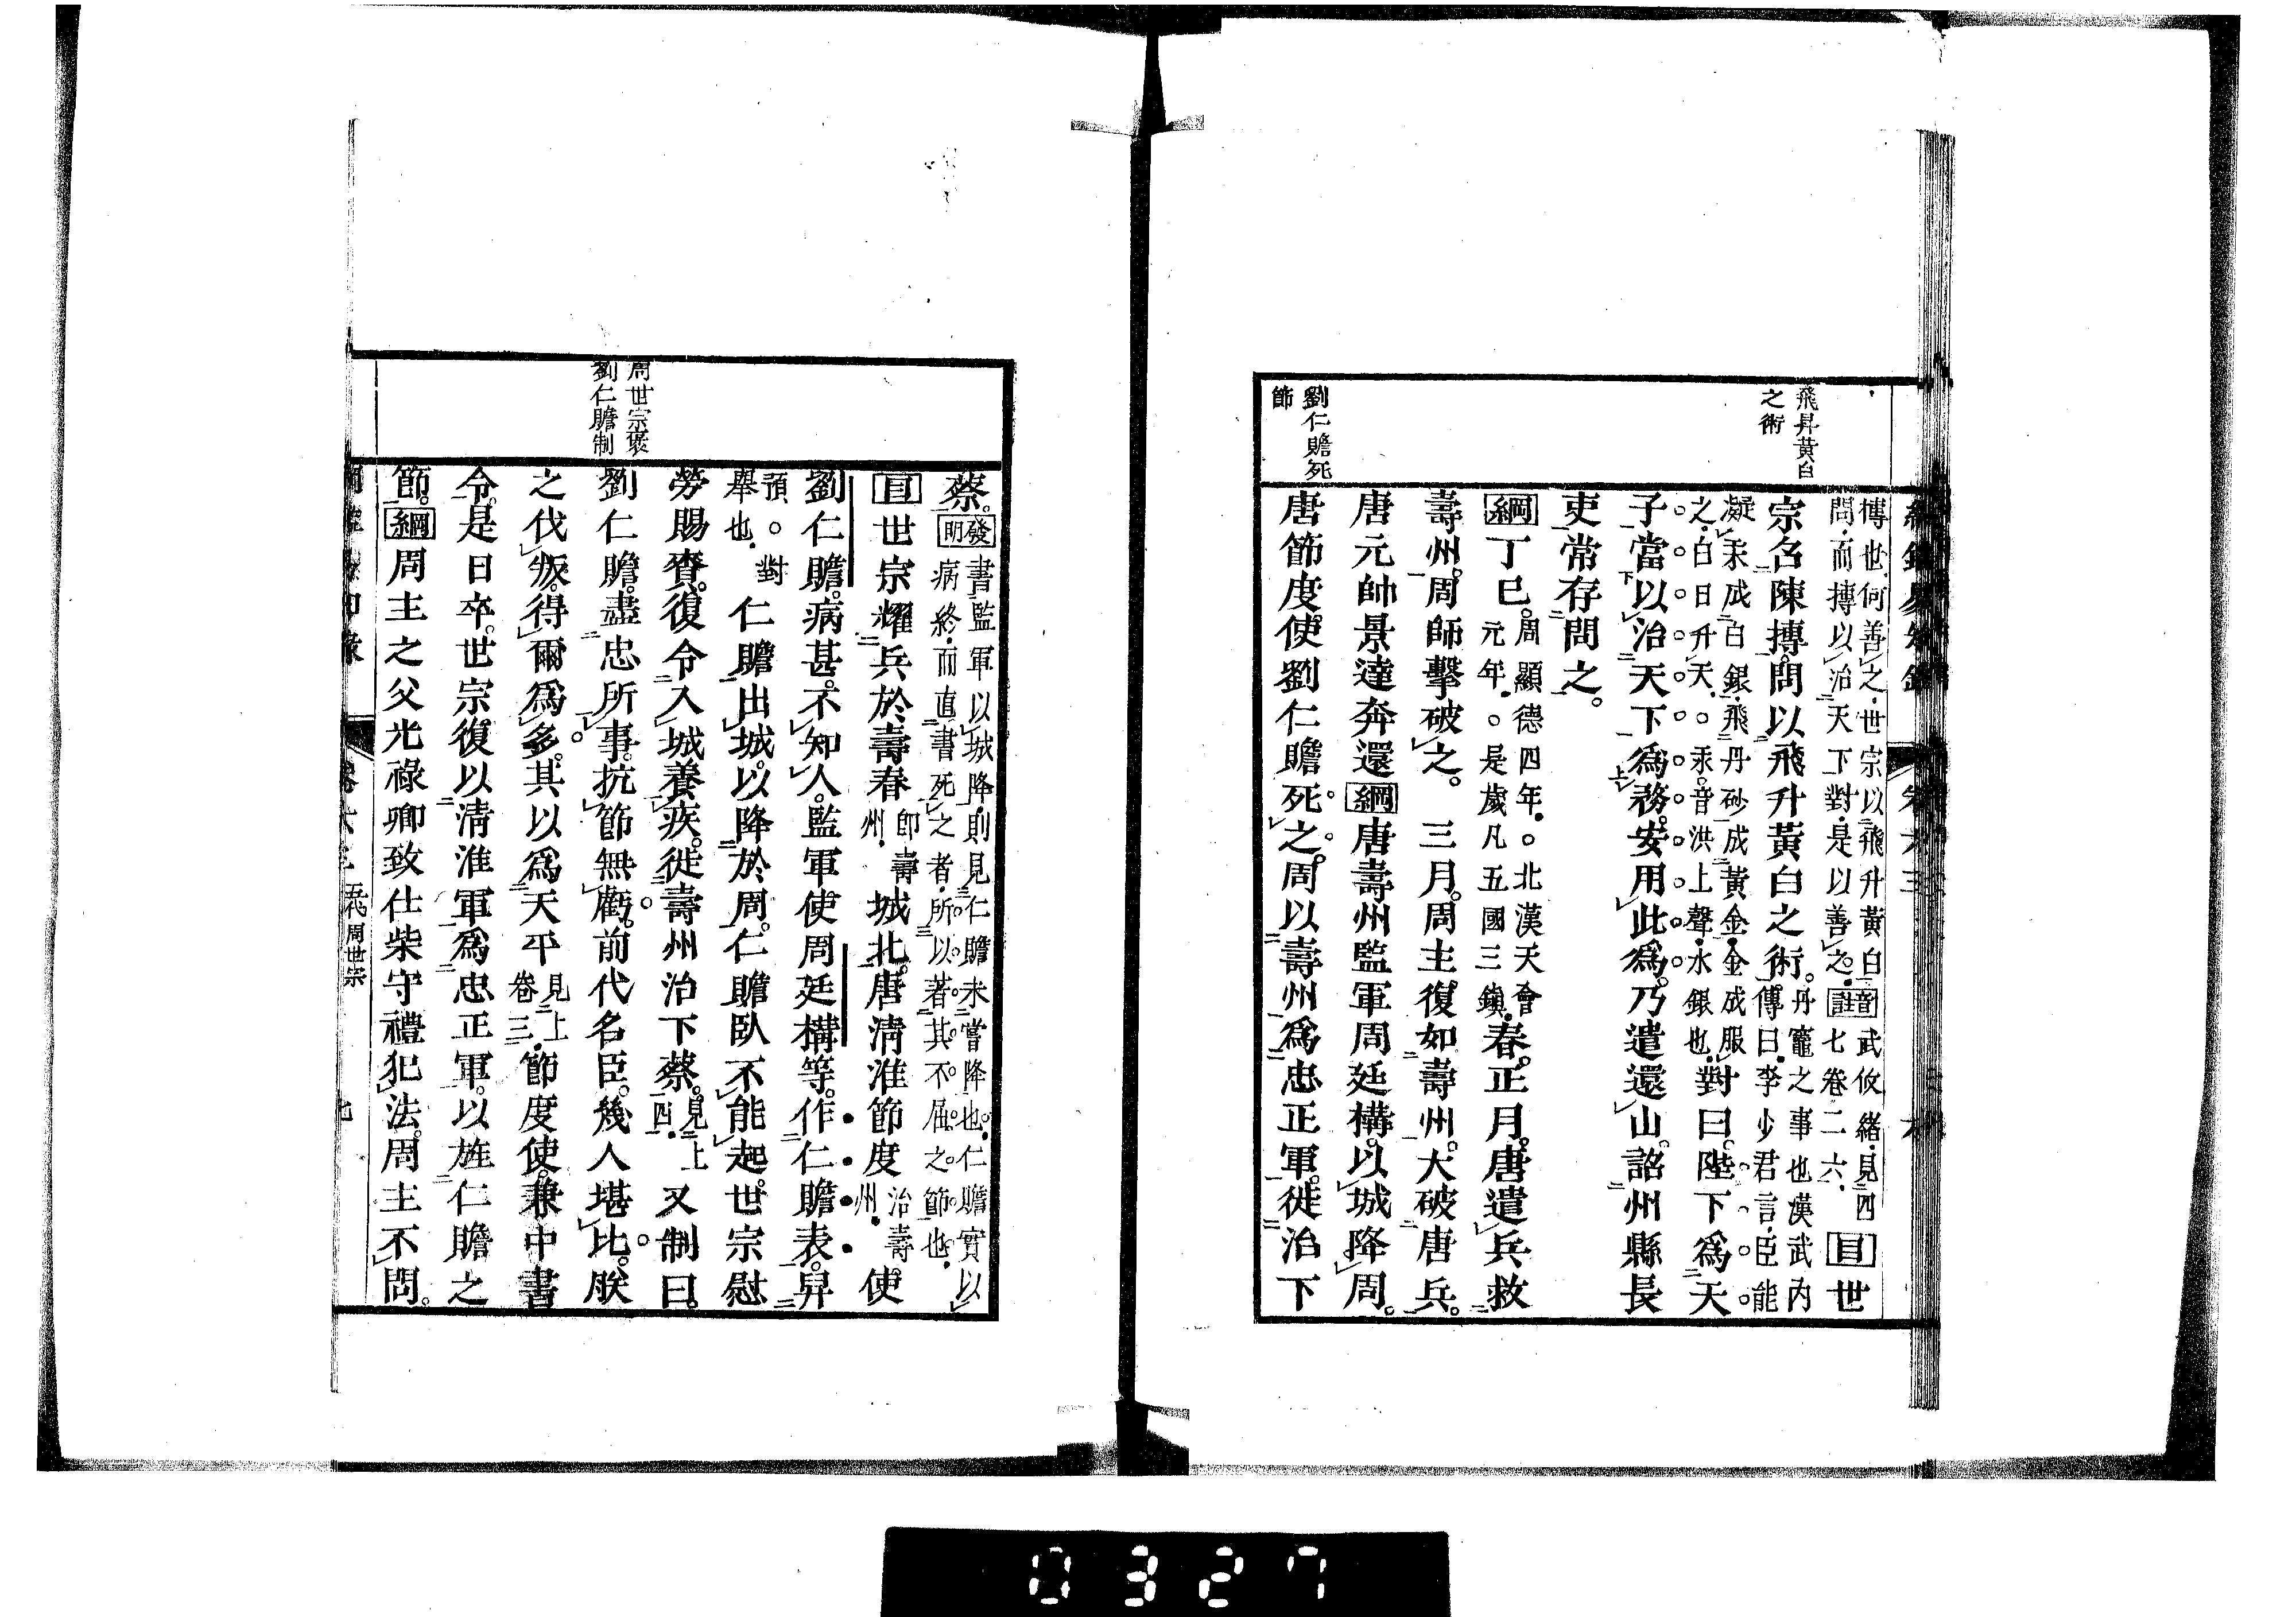 飛昇黃白
之術
劉仁贍死
節
摶世何善之世宗以飛升黃白
問而摶以治天下對是以善之註武攸緒見四
七卷二六目世
宗召陳摶問以飛升黃白之術丹竈之事也漢武內
傳曰李少君言臣能
凝汞成白銀飛丹砂成黃金金成服
之白日升天○汞音洪上聲水銀也對曰陛下爲天
子當以治天下爲務安用此爲乃遣還山詔州縣長
吏常存問之
綱丁巳周顯德四年○北漢天會
元年○是歲凡五國三鎮春正月唐遣兵救
壽州周師擊破之三月周主復如壽州大破唐兵
唐元帥景達奔還綱唐壽州監軍周廷構以城降周
唐節度使劉仁贍死之周以壽州爲忠正軍徙治下
周世宗褒
劉仁贍制
蔡發明書監軍以城降則見仁贍未嘗降也仁贍實以
病終而直書死之者所以著其不屈之節也
目世宗耀兵於壽春即壽
州城北唐淸淮節度治壽
州使
劉仁贍病甚不知人監軍使周廷構等作仁贍表舁
預○對
舉也仁贍出城以降於周仁贍臥不能起世宗慰
勞賜賚復令入城養疾徙壽州治下蔡見上
四又制曰
劉仁贍盡忠所事抗節無虧前代名臣幾人堪比朕
之伐叛得爾爲多其以爲天平見上
卷三節度使兼中書
令是日卒世宗復以淸淮軍爲忠正軍以旌仁贍之
節綱周主之父光祿卿致仕柴守禮犯法周主不問
卷六三 五代周世宗 七